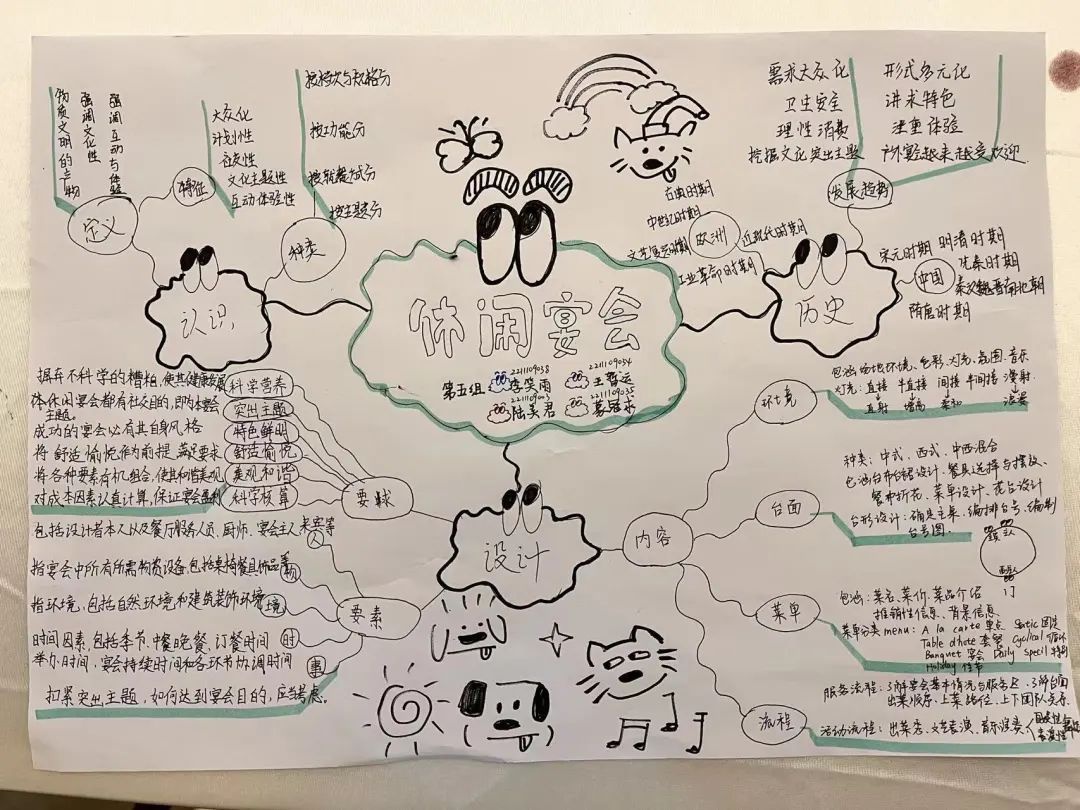 休闲宴会
第五组
2211109038
李笑雨
2211109034
王哲运
2211109003
陆美君
2211109035
认识
定义
物质文明的产物
强调文化性
强调互动与体验
特征
大众化
计划性
文化主题性
互动体验性
种类
按档次与规格分
按功能分
按就餐方式分
按主题分
历史
欧洲
古典时期
中世纪时期
文艺复兴时期
近现代时期
工业革命时期
中国
宋元时期 明清时期
先秦时期
秦汉魏晋南北朝
隋唐时期
发展趋势
需求大众化
卫生安全
理性消费
挖掘文化 突出主题
形式多元化
讲求特色
注重体验
户外宴越来越受欢迎
设计
要求
摒弃不科学的糟粕,使其健康发展
科学营养
体休闲宴会都有社交目的,即为本宴会主题。
突出主题
成功的宴会必有其自身风格
特色鲜明
将舒适愉悦作为前提,满足要求
舒适愉悦
将各种要素有机组合,使其和谐美观
美观和谐
对成本因素认真计算,保证宴会盈利
科学核算
要素
包括设计者本人以及餐厅服务人员、厨师、宴会主人、来宾等
人
指宴会中所有所需物资设备,包括桌椅餐具饰品等
物
指环境,包括自然环境和建筑装饰环境
境
时间因素,包括季节、中餐晚餐、订餐时间
举办时间,宴会持续时间和各环节协调时间
时
扣紧突出主题,如何达到宴会目的,应当考虑。
事
内容
环境
包涵场地环境、色彩、灯光、氛围、音乐
灯光:直接 半直接 间接 半间接 漫射
直射 增高 柔和 浪漫
台面
种类:中式、西式、中西混合
包涵台布台裙设计、餐具选择与摆放、
餐巾折花、菜单设计、花台设计
台形设计:确定主桌、编排台号、编制
台号图
门
菜单
包涵:菜名、菜价、菜品介绍
推销性信息、背景信息
菜单分类 menu: A la carte 单点 Static 固定
Table d'hote 套餐 Cyclical 循环
Banquet 宴会 Daily specil 特别
Holiday 佳节
流程
服务流程:了解宴会基本情况与服务区、了解台面
出菜顺序、上菜路位、上下团队关系
活动流程:出菜秀、文艺表演、音乐演奏